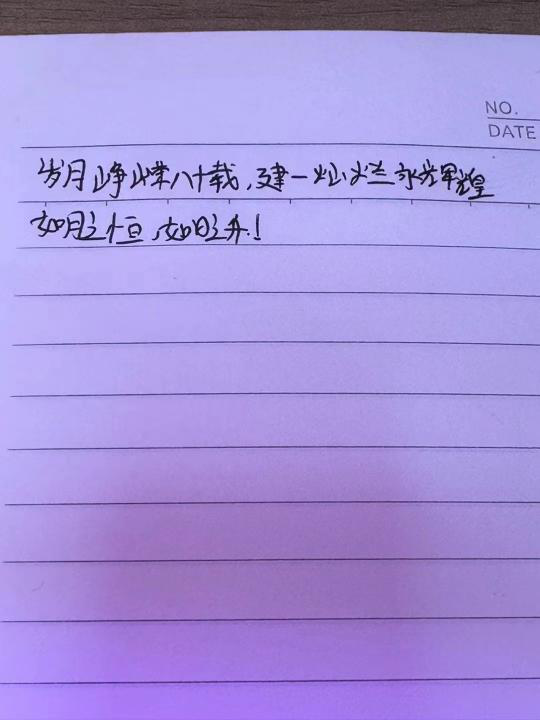 NO.
DATE
岁月峥嵘八十载,建一灿烂永辉煌
如月之恒,如日之升!